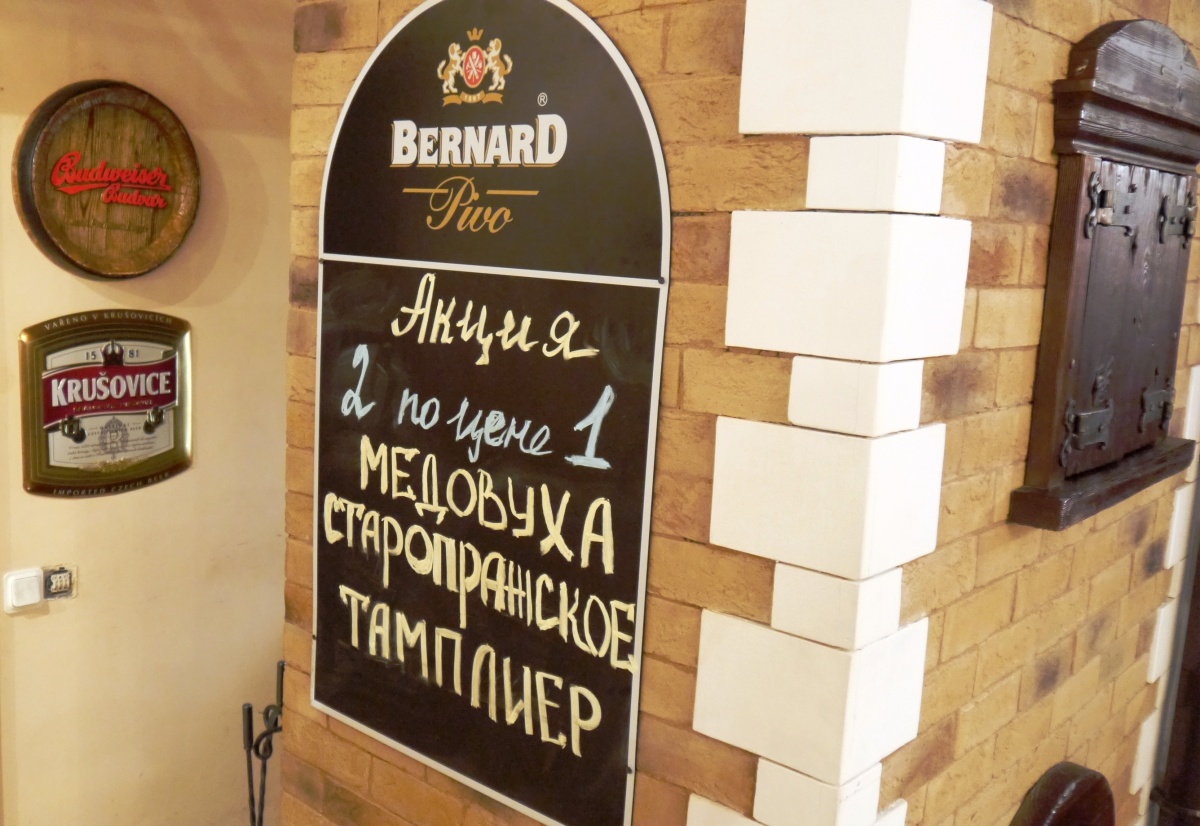 Budweiser
Budvar
VAŘENO V KRUŠOVICÍCH
1581
KRUŠOVICE
IMPORTED CZECH BEER
1597
®
BERNARD
Pivo
Акция
2 по цене 1
МЕДОВУХА
СТАРОПРАЖСКОЕ
ТАМПЛИЕР